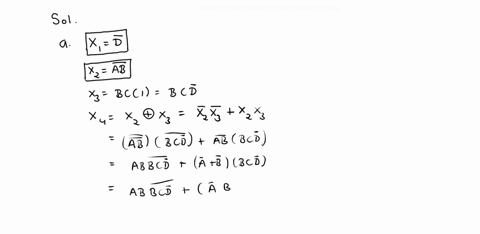 Sol.
a. X₁ = D̅
X₂ = A̅B̅
X₃ = BC(1) = BCD̅
X₄ = X₂ ⊕ X₃ = X̅₂ X̅₃ + X₂ X₃
= (A̅B̅) (B̅C̅D̅) + A̅B̅ (BCD̅)
= AB B̅C̅D̅ + (A̅ + B̅) (BCD̅)
= AB B̅C̅D̅ + (A̅ B